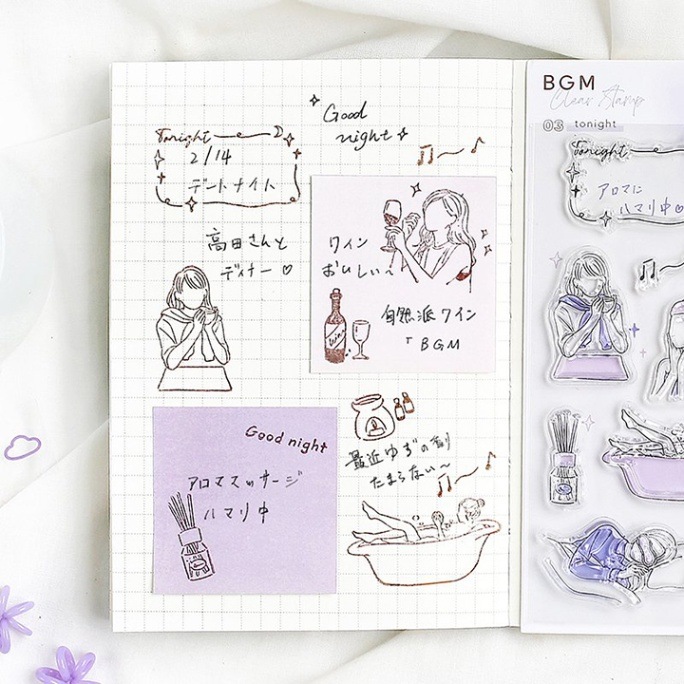 Good
night
Tonight
2/14
デートナイト
高田さんと
ディナー♡
ワイン
おいしい〜
自然派ワイン
「BGM
Good night
アロママッサージ
ハマリ中
最近ゆずの香り
たまらない〜
BGM
Clear Stamp
03 tonight
Tonight
アロマに
ハマリ中♡